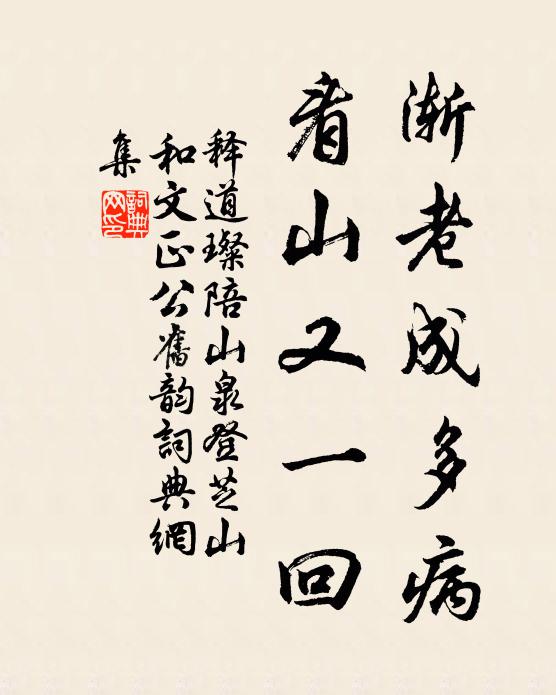 渐老成多病
看山又一回
释道璨陪山泉登芝山
和文正公舊韵詞典網
集
詞典
网印